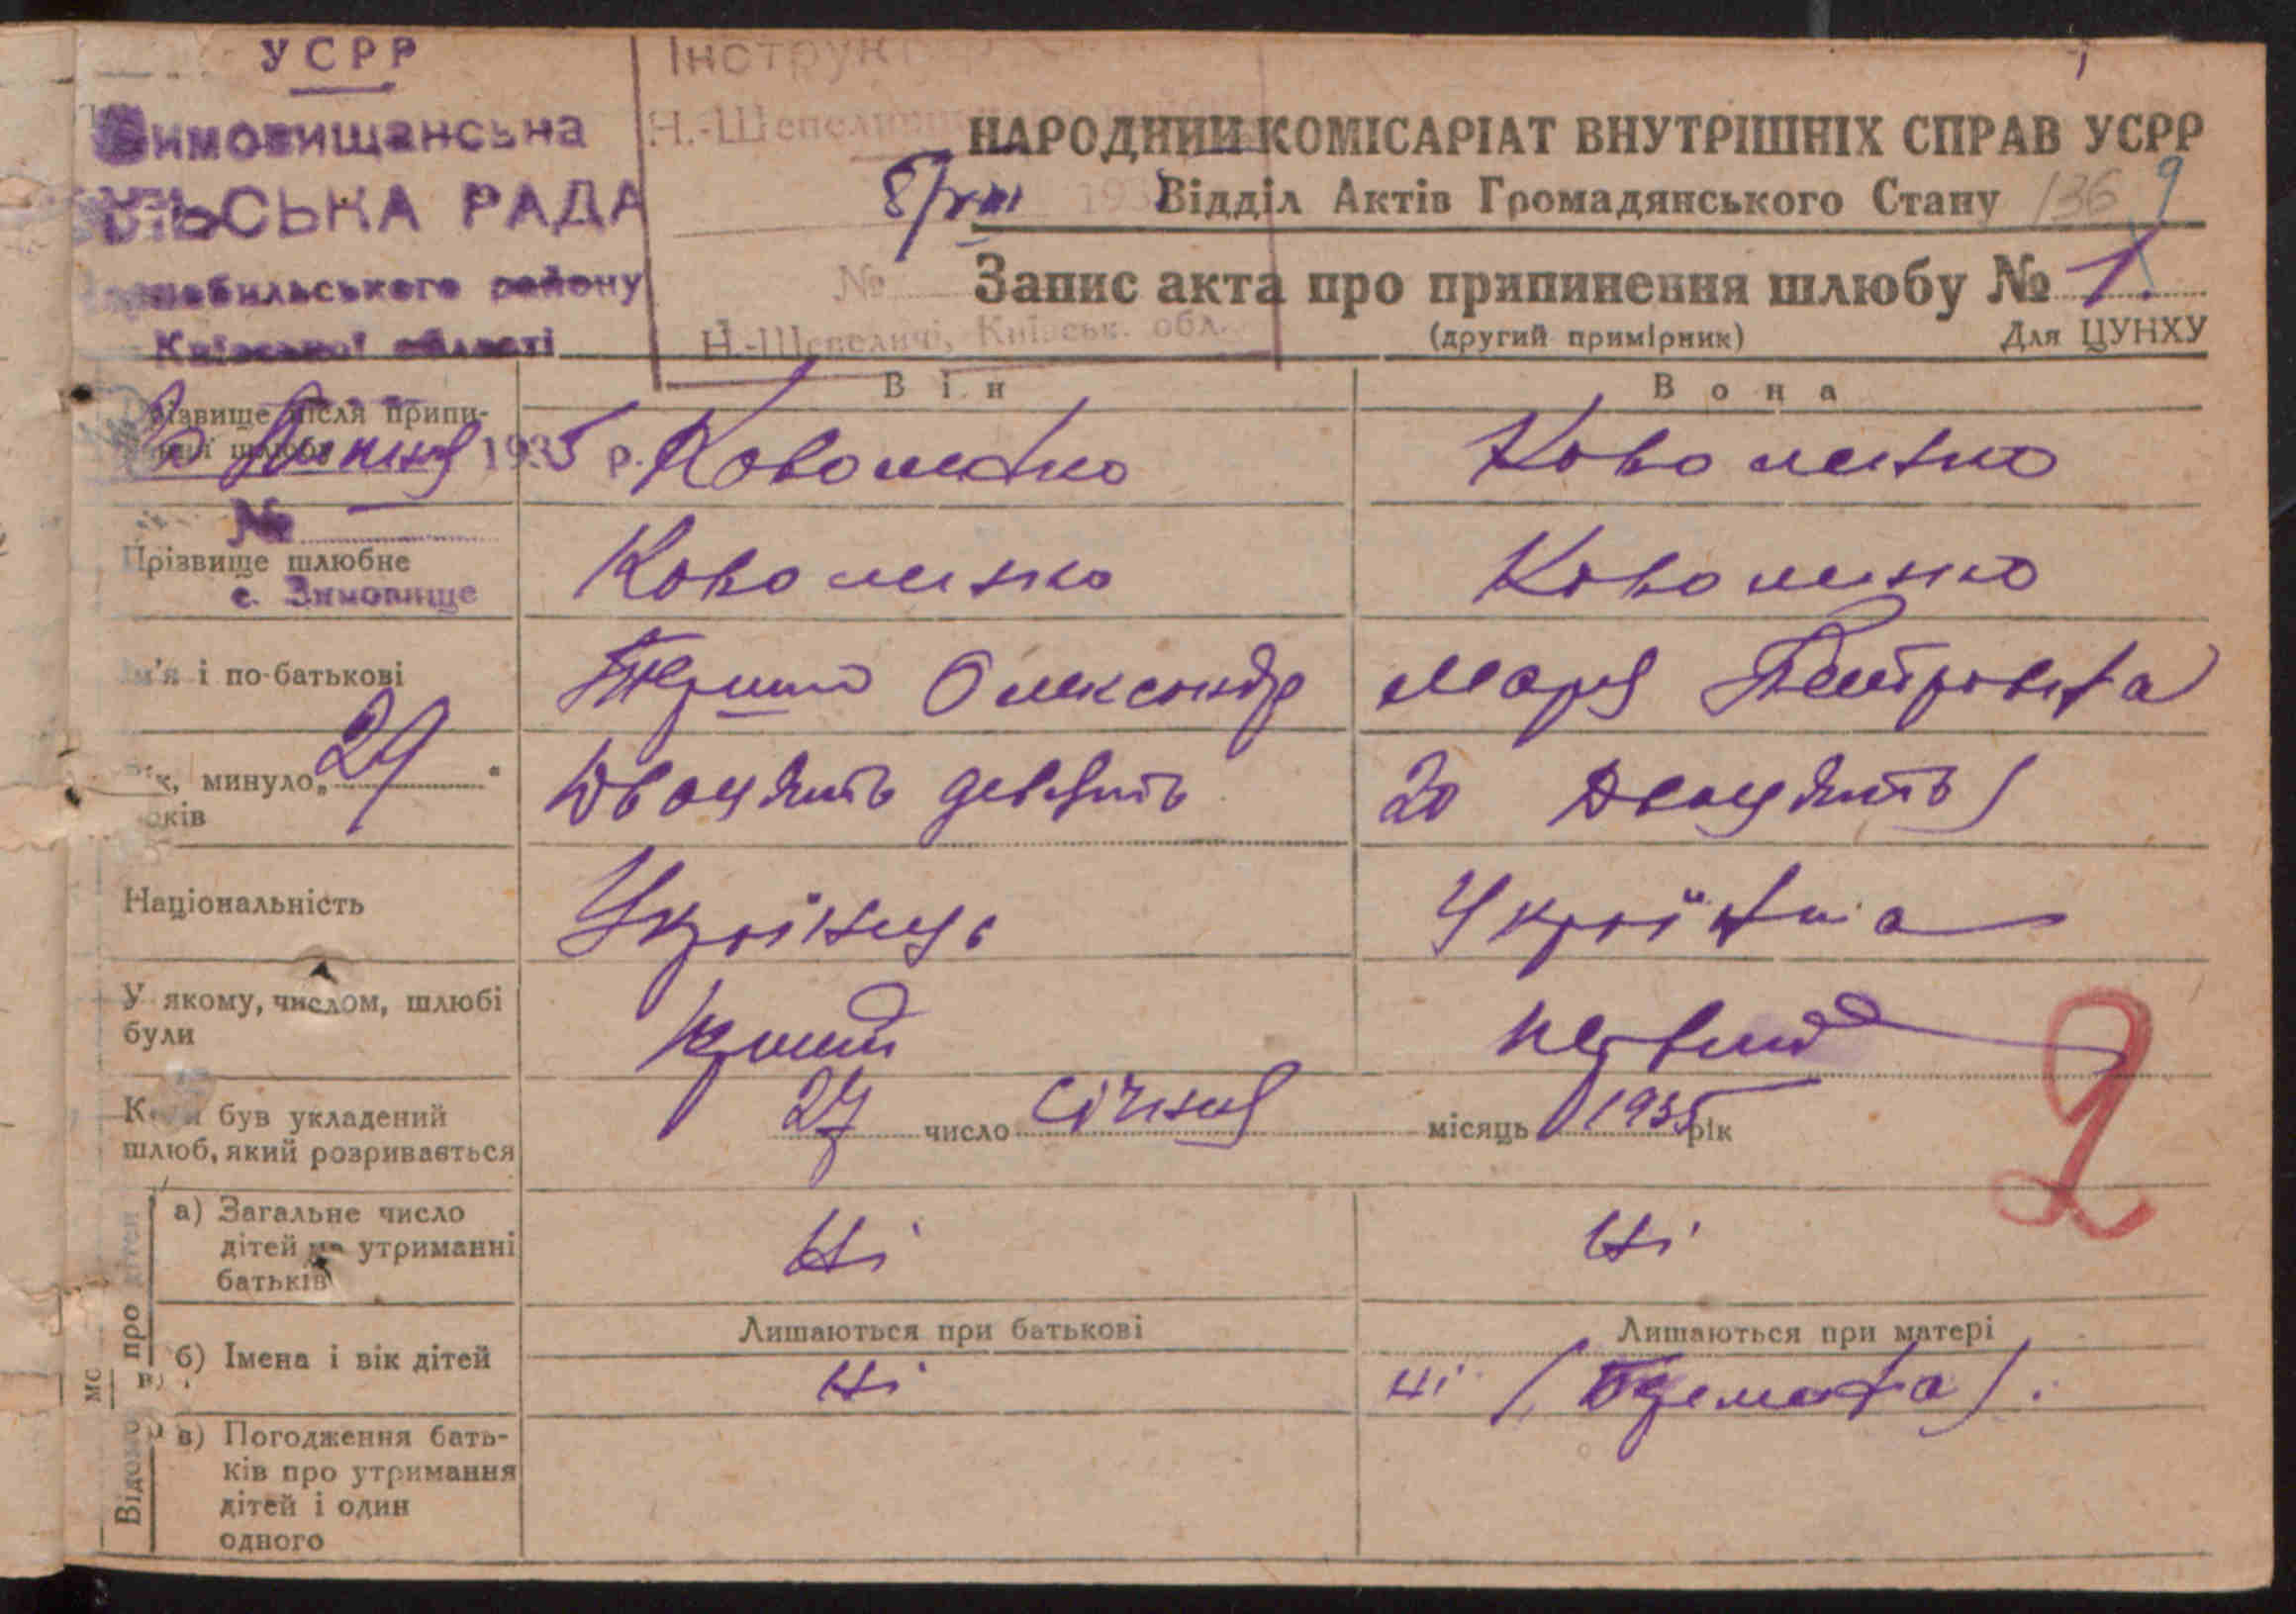 УСРР
Зимовищанська
СІЛЬСЬКА РАДА
Чорнобильського району
Київської області
Інструк
Н.-Шепелиц
НАРОДНИЙ КОМІСАРІАТ ВНУТРІШНІХ СПРАВ УСРР
8/VIII 193
Відділ Актів Громадянського Стану 136 9
№
Запис акта про припинення шлюбу № 1.
Н.-Шепеличі, Київськ. обл.
(другий примірник) Для ЦУНХУ
Він Вона
Прізвище після припи-
нення шлюбу
1935 р.
Коваленко Коваленко
№
Прізвище шлюбне Коваленко Коваленко
с. Зимовище
Ім'я і по-батькові Олександр Марія Петровна
Вік, минуло „29“
років
Двацять девять 20 Двацять
Національність Українець Українка
У якому, числом, шлюбі
були
первий
Коли був укладений
шлюб, який розривається
27 число січня місяць 1935 рік
2
Відомості про дітей
а) Загальне число
дітей на утриманні
батьків
Ні Ні
Лишаються при батькові Лишаються при матері
б) Імена і вік дітей Ні ні
в) Погодження бать-
ків про утримання
дітей і один
одного